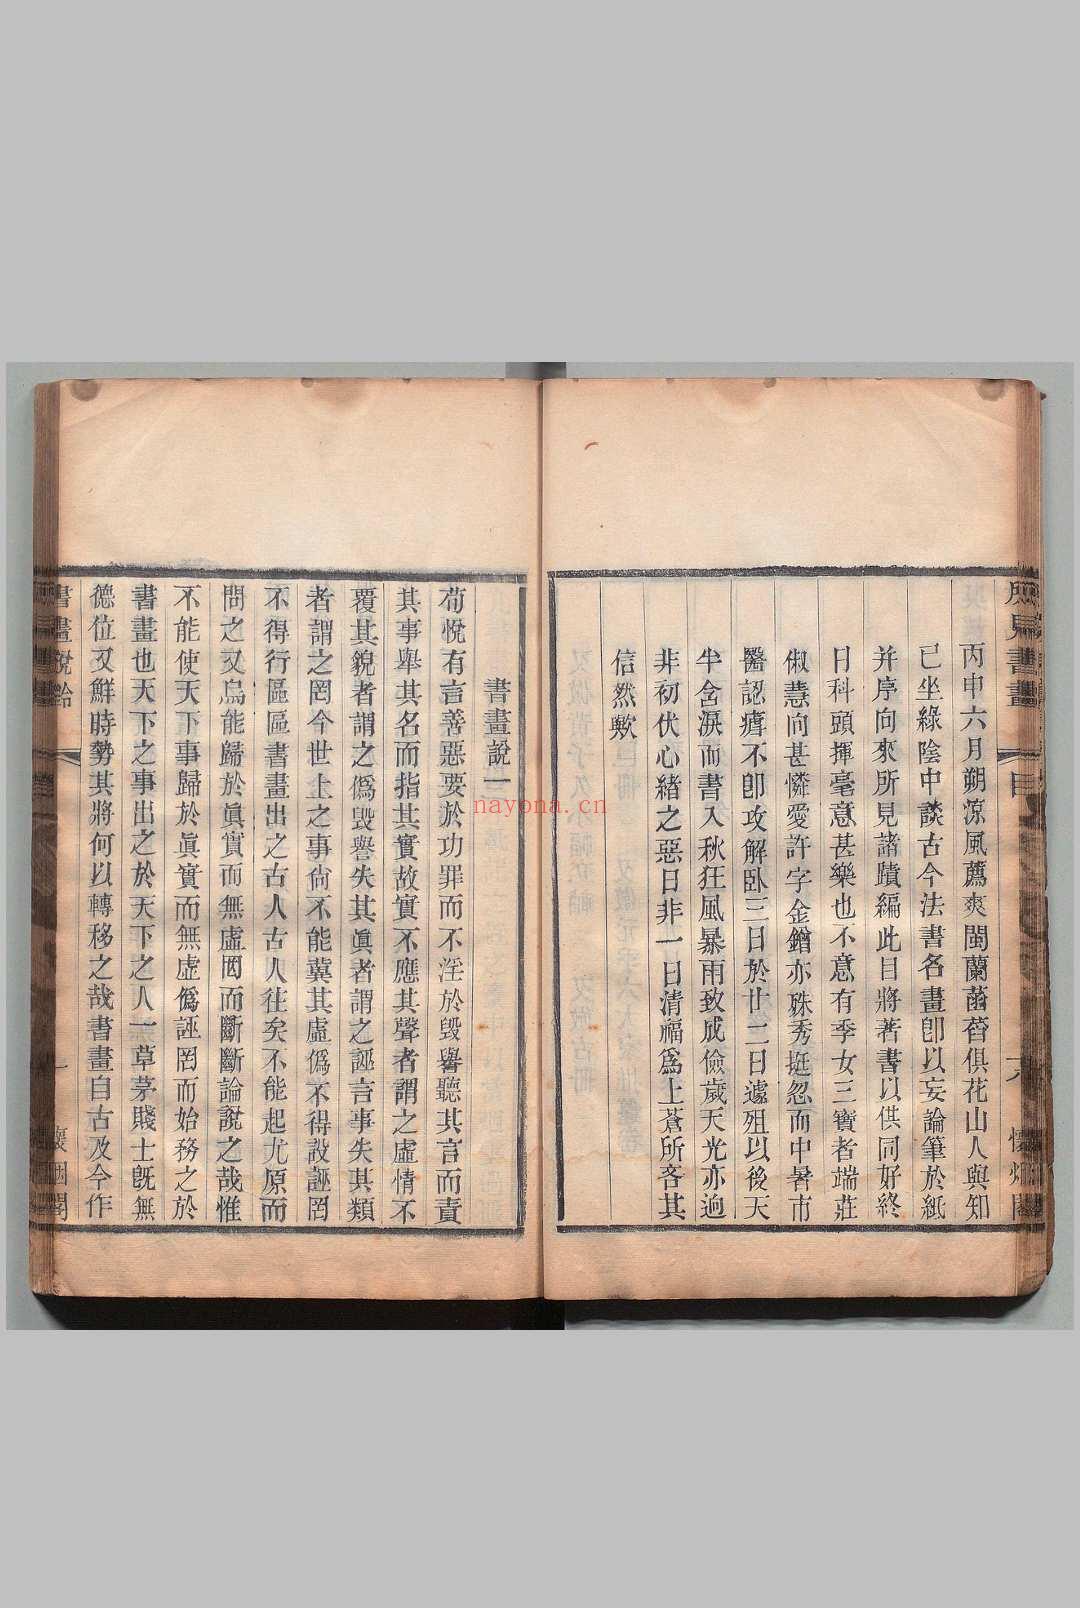 丙申六月朔凉風薦爽閩蘭菡萏俱花山人與知
已坐綠陰中談古今法書名畫卽以妄論筆於紙
并序向來所見諸蹟編此目將著書以供同好終
日科頭揮毫意甚樂也不意有季女三寶者端莊
俶慧向甚憐愛許字金鐕亦殊秀挺忽而中暑市
醫認瘄不卽攻解卧三日於廿二日遽殂以後天
半含淚而書入秋狂風暴雨致成儉歲天光亦逈
非初伏心緒之惡日非一日清福爲上蒼所吝其
信然歟
書畫說一
苟悅有言善惡要於功罪而不淫於毀譽聽其言而責
其事舉其名而指其實故實不應其聲者謂之虛情不
覆其貌者謂之僞毀譽失其眞者謂之誣言事失其類
者謂之罔今世上之事尙不能冀其虛僞不得設誣罔
不得行區區書畫出之古人古人往矣不能起尤原而
問之又烏能歸於眞實而無虛罔而斷斷論說之哉惟
不能使天下事歸於眞實而無虛僞誣罔而始務之於
書畫也天下之事出之於天下之人一草茅賤士旣無
德位又鮮時勢其將何以轉移之哉書畫自古及今作
書畫說鈴
一
懷烟閣
nayona.cn